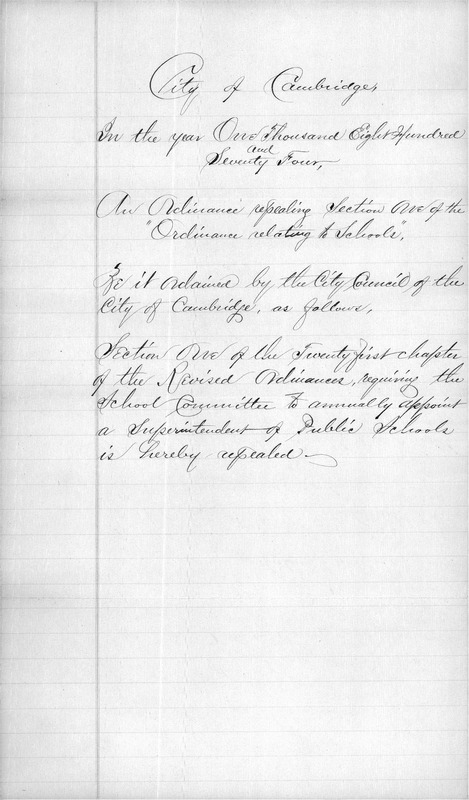 City of Cambridge,
In the year One Thousand Eight Hundred
and
Seventy Four,
An Ordinance repealing Section One of the
"Ordinance relating to Schools",
Be it ordained by the City Council of the
City of Cambridge, as follows,
Section One of the Twenty first chapter
of the Revised Ordinances, requiring the
School Committee to annually appoint
a Superintendent of Public Schools
is hereby repealed